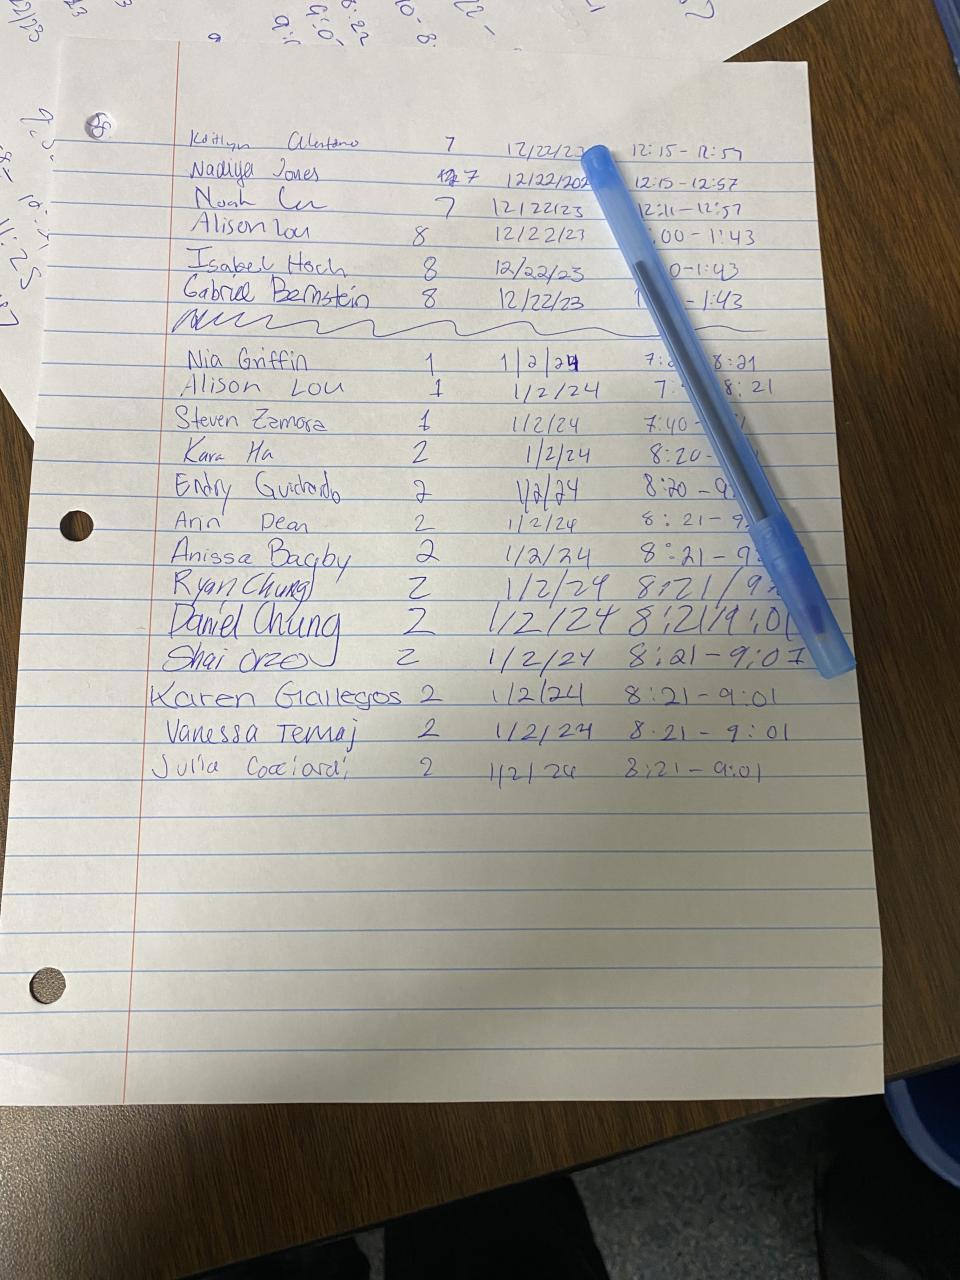 22/23
58
Kaitlyn 7 12/22/23 12:15-12:57
Nadiya Jones 7 12/22/202 12:15-12:57
Noah 7 12/22/23 12:11-12:57
Alison Lou 8 12/22/23 :00-1:43
Isabel Hoch 8 12/22/23 0-1:43
Gabriel Bernstein 8 12/22/23 1 -1:43
Nia Griffin 1 1/2/24 7: 8:21
Alison Lou 1 1/2/24 7: 8:21
Steven Zamora 1 1/2/24 7:40-
Kara Ha 2 1/2/24 8:20-
Endry 2 1/2/24 8:20-9
Ann Dean 2 1/2/24 8:21-9
Anissa Bagby 2 1/2/24 8:21-9
Ryan Chung 2 1/2/24 8:21/9:
Daniel Chung 2 1/2/24 8:21/9:01
Shai Orzov 2 1/2/24 8:21-9:01
Karen Gallegos 2 1/2/24 8:21-9:01
Vanessa Temaj 2 1/2/24 8:21-9:01
Julia Cocciardi 2 1/2/24 8:21-9:01